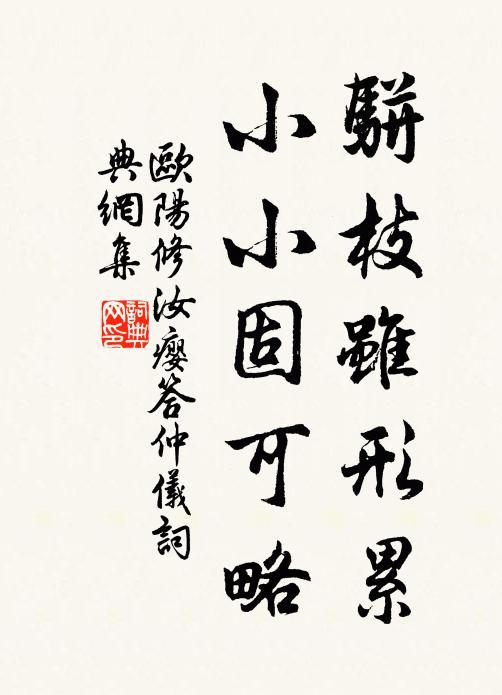 駢枝雖形累
小小固可略
歐陽修汝癭答仲儀詞
典網集
詞典
网印